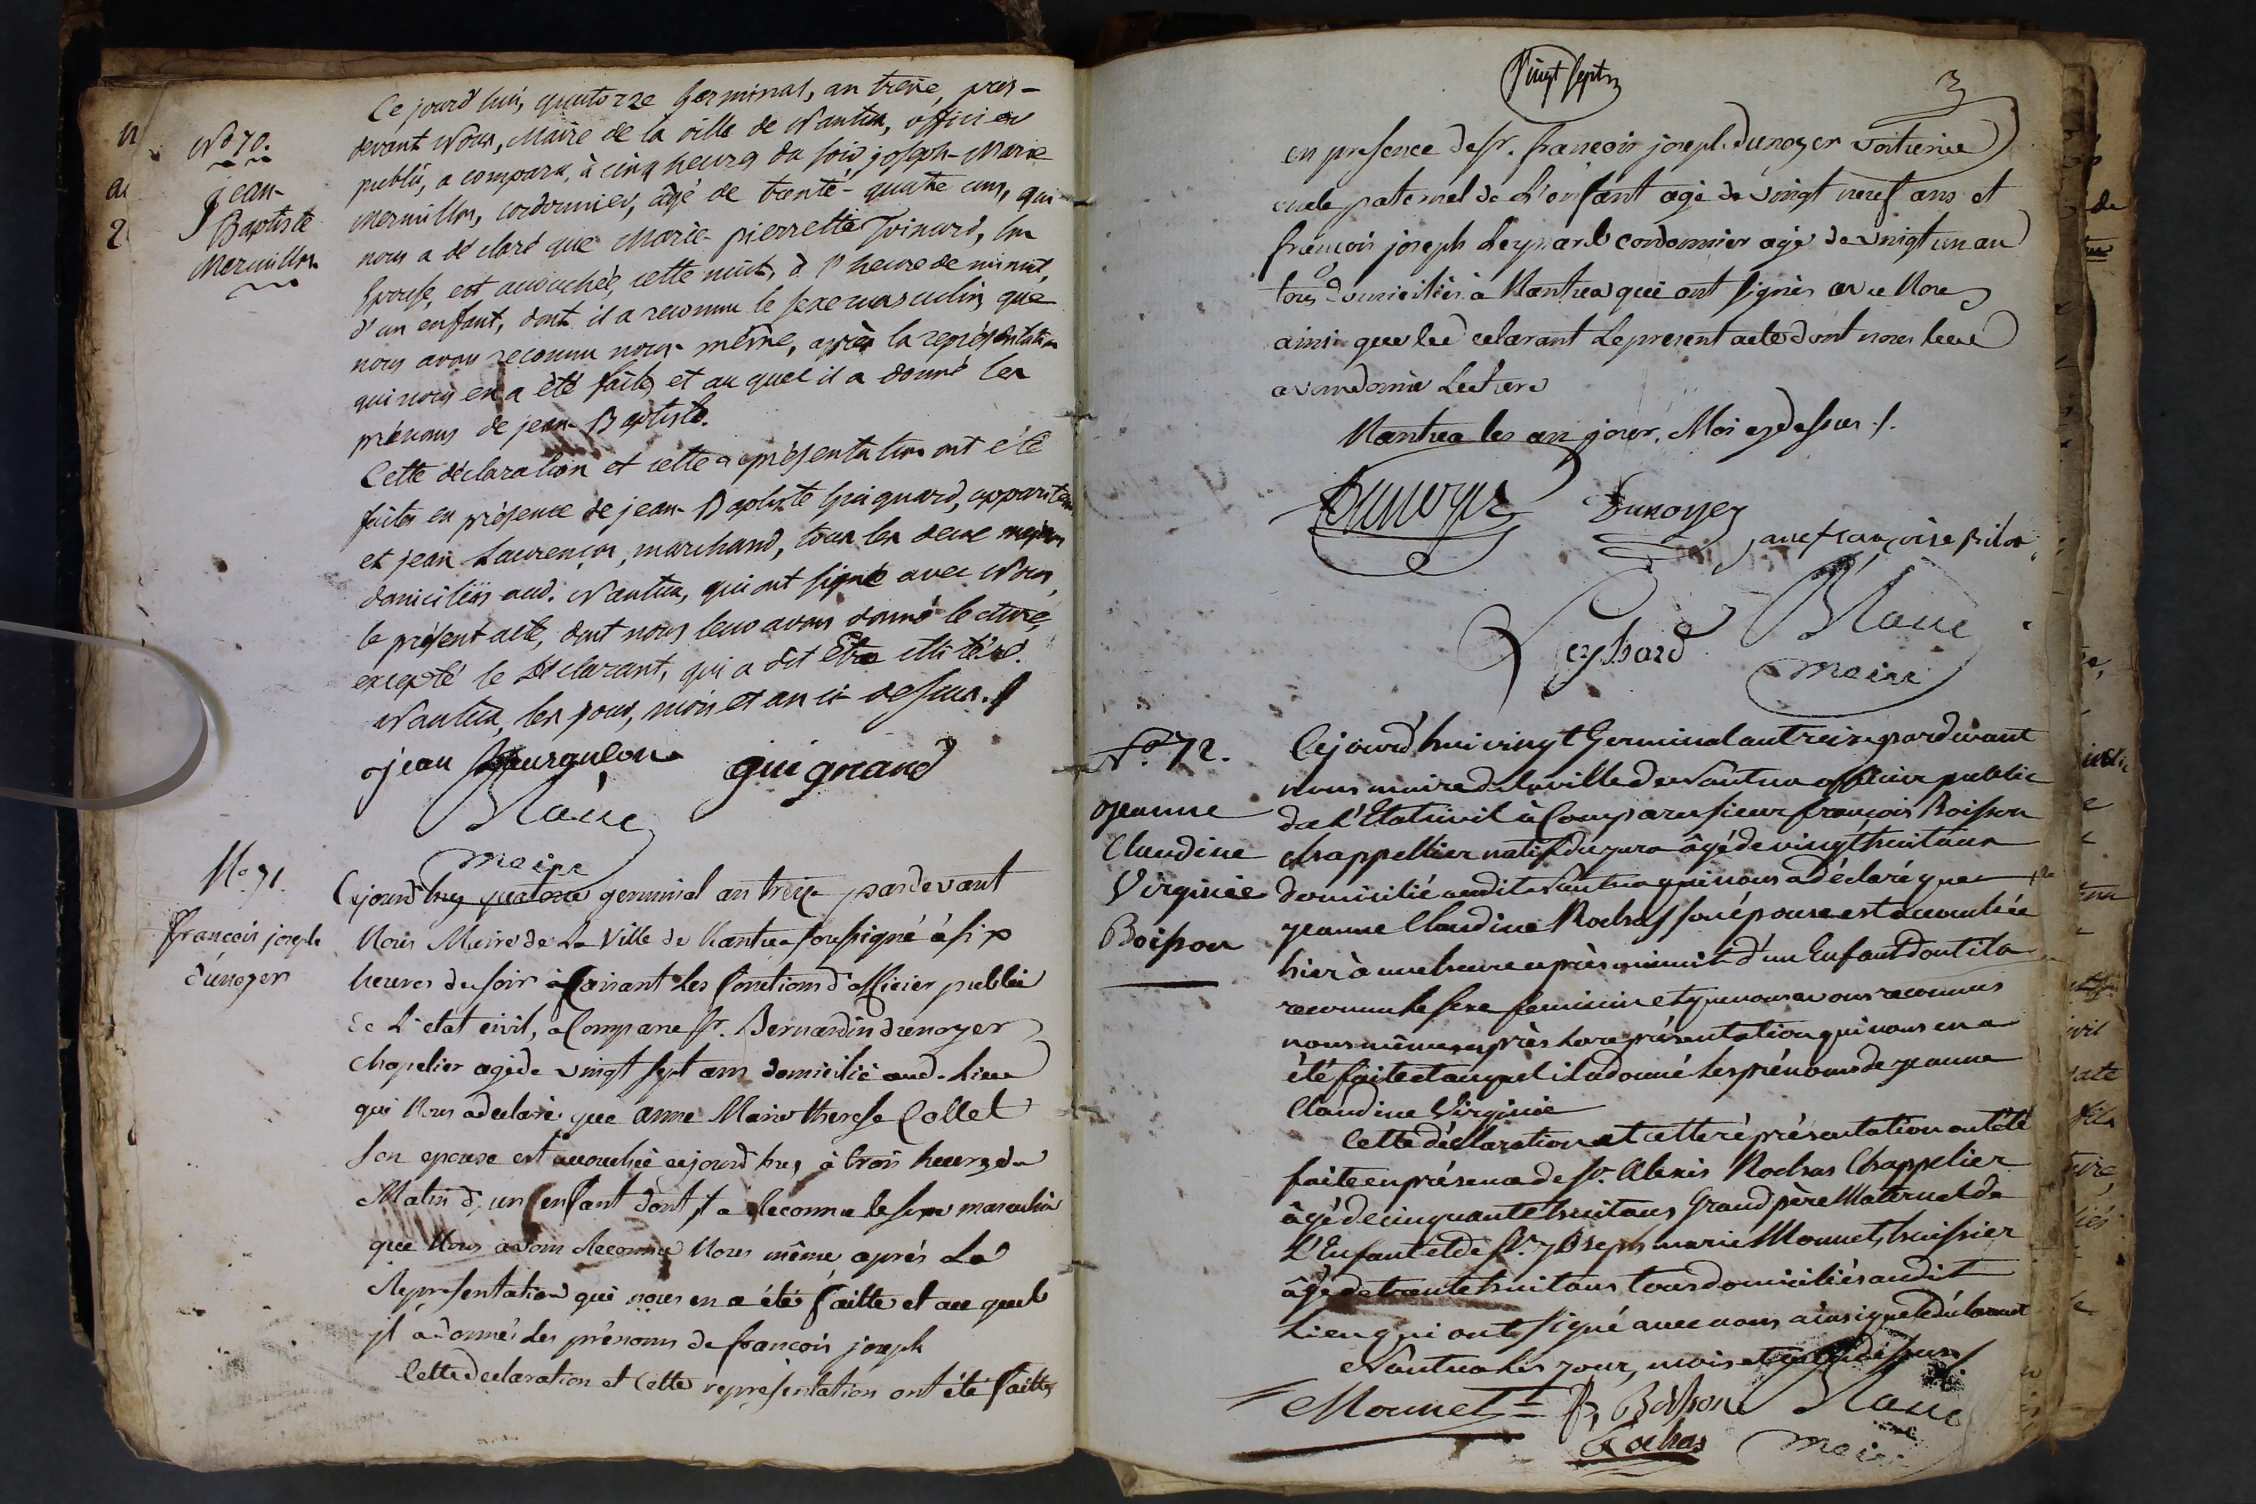 No 70.
jean-
Baptiste
Mermillon
Ce jourd'hui, quatorze Germinal, an treize, par-
devant Nous, Maire de la ville de Nantua, officier
public, a comparu, à cinq heures du soir joseph-Marie
Mermillon, cordonnier, âgé de trente-quatre ans, qui
nous a déclaré que Marie-pierrette Joinard, son
Epouse, est accouchée, cette nuit, à 1re heure de minuit,
d'un enfant, dont il a reconnu le sexe masculin, que
nous avons reconnu nous-même, après la représentation
qui nous en a été faite, et au quel il a donné les
prénoms de jean-Baptiste.
Cette déclaration et cette représentation ont été
faites en présence de jean-Baptiste Guignard, appariteur
et jean Laurençon, marchand, tous les deux majeurs
domiciliés aud. Nantua, qui ont signé avec Nous,
le présent acte, dont nous leur avons donné lecture,
excepté le Déclarant, qui a dit être illitéré.
Nantua, les jour, mois et an ci-dessus.
jean
guignard
Blanc
maire
No 71.
françois joseph
dunoyer
Cejourd'huy quatorze germinal an treize pardevant
Nous Maire de la Ville de Nantua soussigné à six
heures du soir faisant les fonctions d'officier public
de L'état civil, a Comparu Sr. Bernardin dunoyer
Chapelier agé de vingt sept ans domicilié aud. Lieu
qui Nous a declaré que anne Marie therese Collet
Son epouse est accouchée cejourd'huy à trois heures du
Matin d'un enfant dont jl a Reconnu le sexe masculin
que Nous avons Reconnu Nous même après La
Representation qui nous en a été faitte et au quel
jl a donné les prénoms de françois joseph
Cette declaration et Cette representation ont été faittes
Vingt sept
3
en presence de sr. françois joseph dunoyer voiturier
oncle paternel de L'enfant agé de vingt neuf ans et
françois joseph Leynard cordonnier agé de vingt un an
tous domiciliés à Nantua qui ont signés avec Nous
ainsi que le declarant Le present acte dont nous leur
avons donné Lecture
Nantua les an, jour, Mois cydessus /.
Dunoyer
Dunoyer
anefrançoise pilo
Leynard
Blanc
maire
No. 72.
Jeanne
Claudine
Virginie
Boisson
Cejourd'hui vingt Germinal an treize pardevant
nous maire de la ville de Nantua officier public
de l'Etat civil à Comparu sieur françois Boisson
chappellier natif du jura âgé de vingt huit ans
domicilié audit Nantua qui nous a déclaré que
jeanne Claudine Rochas son épouse est accouchée
hier à une heure après minuit d'un Enfant dont il a
reconnu le sexe feminin et que nous avons reconnus
nous même après la représentation qui nous en a
été faite et auquel il a donné les prénoms de jeanne
Claudine Virginie
Cette déclaration et cette réprésentation ont été
faite en présence de sr. Alexis Rochas Chappelier
âgé de cinquante huit ans Grand père Maternel de
L'Enfant et de sr. joseph marie Mounet, huissier
âgé de trente huit ans tous domiciliés audit
Lieu qui ont signé avec nous ainsi que le déclarant
Nantua les jour, mois et an cy dessus /.
Mounet
f. Boisson
Blanc
Rochas
maire